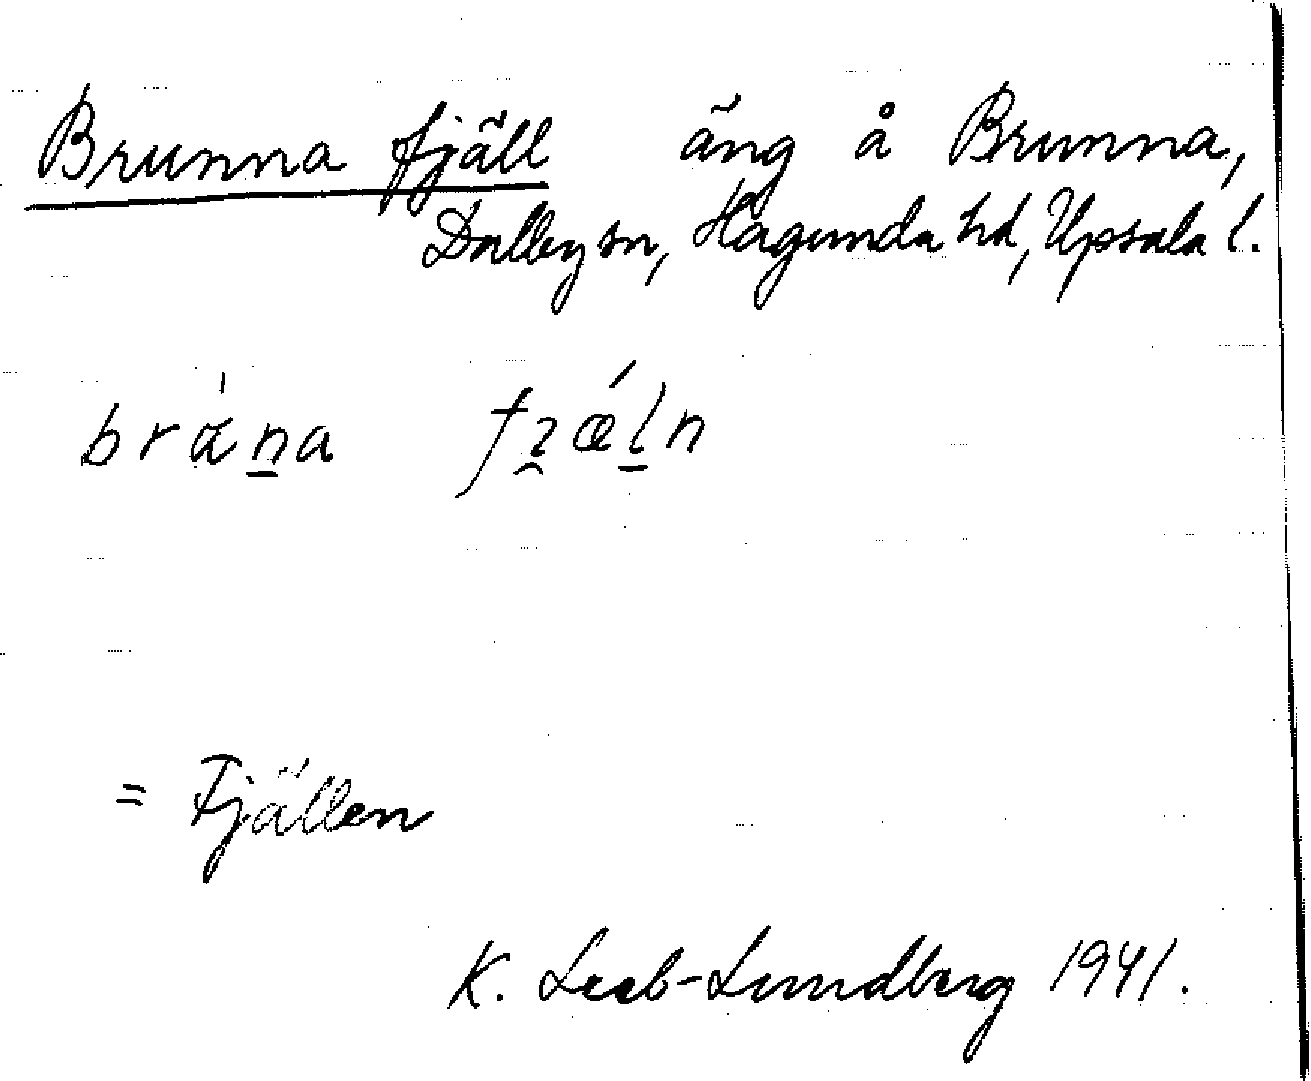 Brunna fjäll äng å Brunna,
Dalby sn, Hagunda hd, Upsala l.
= Fjällen
K. Leeb-Lundberg 1941.